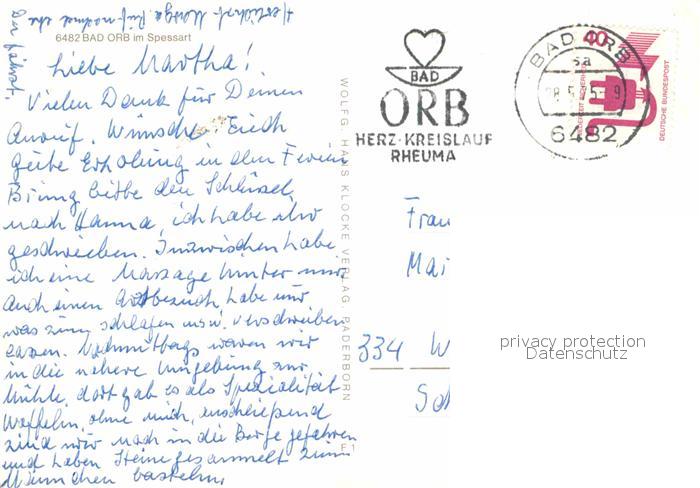 6482 BAD ORB im Spessart
Liebe Martha!
Vielen Dank für Deinen
Anruf. Wünsche Euch
gute Erholung in den Ferien
Bring bitte den Schlüssel
nach Hanna, ich habe ihr
geschrieben. Inzwischen habe
ich eine Massage hinter mir
auch einen Arztbesuch habe mir
was zum schlafen usw. verschreiben
lassen. Nachmittags waren wir
in die nähere Umgebung zur
Mühle, dort gab es als Spezialität
Waffeln, ohne mich, anschließend
sind wir noch in die Berge gefahren
und haben Steine gesammelt zum
Männchen basteln,
WOLFG. HANS KLOCKE VERLAG, PADERBORN
F1
BAD
ORB
HERZ-KREISLAUF
RHEUMA
BAD ORB
sa
6482
40
DEUTSCHE BUNDESPOST
Frau
Mai
334 W
Sch
privacy protection
Datenschutz